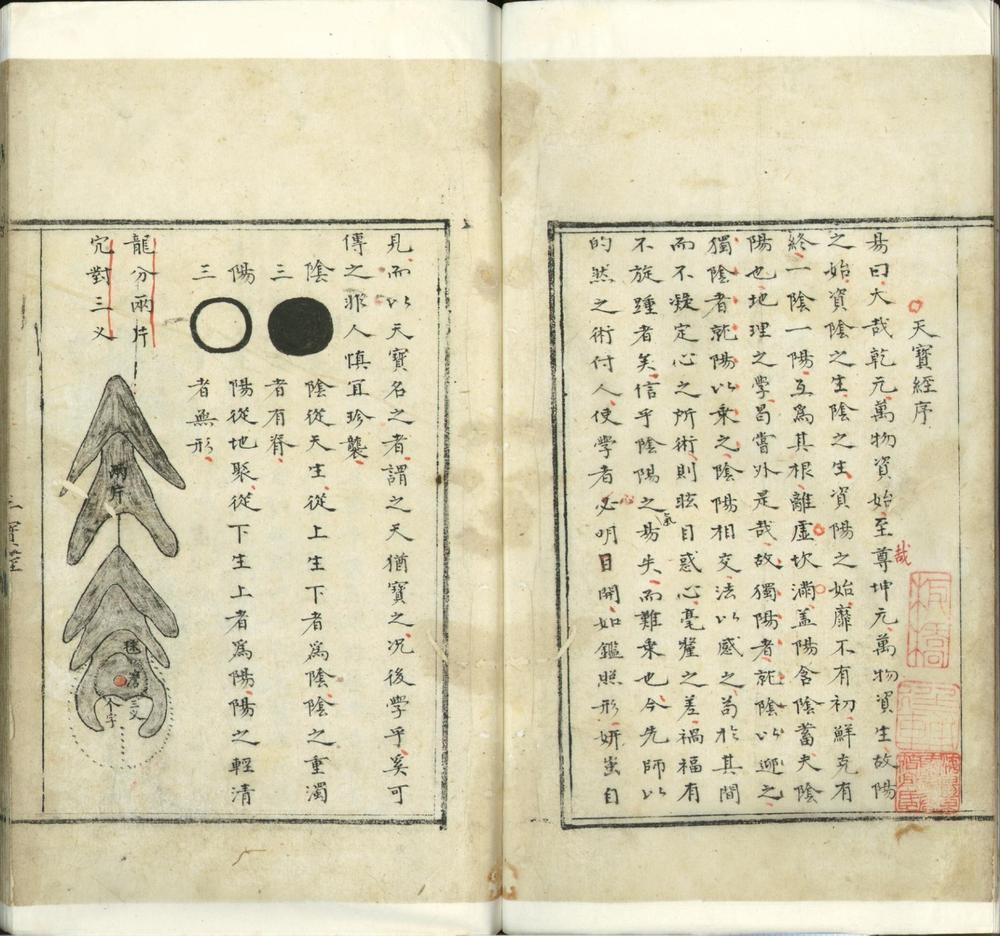 天寶經序
易曰大哉乾元萬物資始至哉尊坤元萬物資生故陽
之始資陰之生陰之生資陽之始靡不有初鮮克有
終一陰一陽互為其根離虛坎滿盖陽含陰蓄夫陰
陽也地理之學曷嘗外是哉故獨陽者就陰以迎之
獨陰者就陽以乘之陰陽相交法以感之苟於其間
而不凝定心之所術則眩目惑心毫釐之差禍福有
不旋踵者矣信乎陰陽之氣易失而難乘也今先師以
的然之術付人使學者心必明目開如鑑照形妍蚩自
見而以天寶名之者謂之天猶寶之况後學乎奚可
傳之非人慎宜珍襲
陰三 陰從天生從上生下者為陰陰之重濁
者有脊
陽三 陽從地聚從下生上者為陽陽之輕清
者無形
龍分兩片
穴對三义
兩片
三义
个字
三寶經
板橋